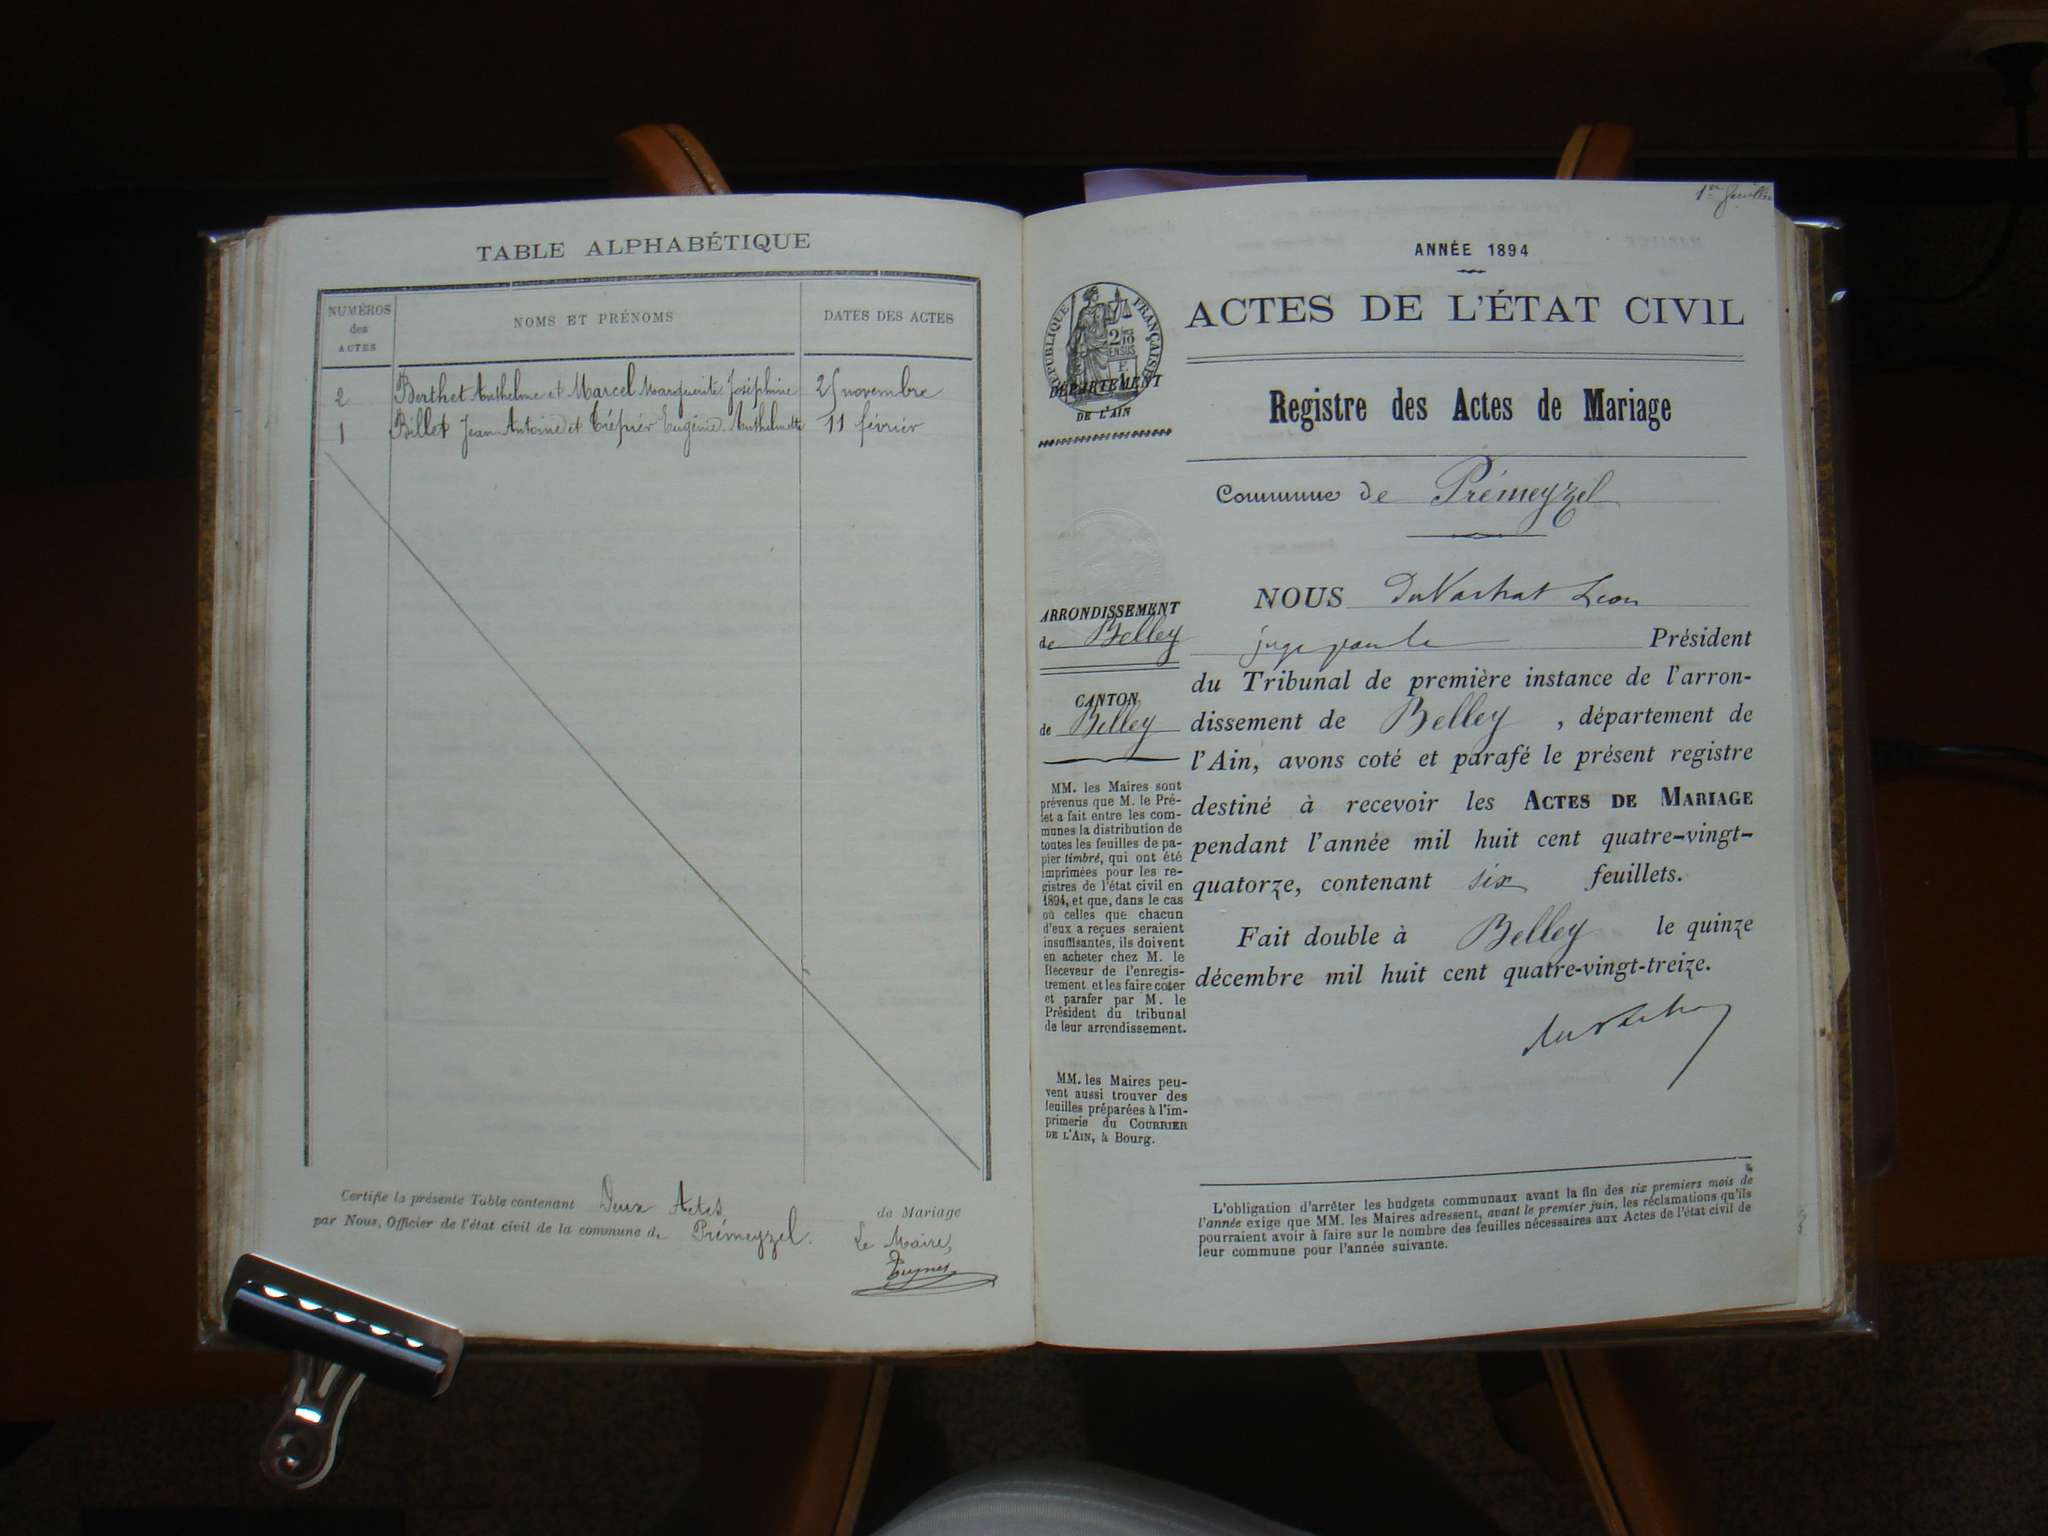 TABLE ALPHABÉTIQUE
NUMÉROS
des
ACTES
NOMS ET PRÉNOMS
DATES DES ACTES
2 Berthet Anthelme et Marcel Marguerite Joséphine 25 novembre
1 Billot Jean Antoine et Trépier Eugénie Anthelmette 11 février
Certifie la présente Table contenant Deux Actes de Mariage
par Nous, Officier de l'état civil de la commune de Prémeyzel.
Le Maire,
1er feuillet
ANNÉE 1894
ACTES DE L'ÉTAT CIVIL
RÉPUBLIQUE FRANÇAISE
2/10
EN SUS
DÉPARTEMENT
DE L'AIN
Registre des Actes de Mariage
Commune de Prémeyzel
ARRONDISSEMENT
de Belley
CANTON
de Belley
MM. les Maires sont
prévenus que M. le Pré-
fet a fait entre les com-
munes la distribution de
toutes les feuilles de pa-
pier timbré, qui ont été
imprimées pour les re-
gistres de l'état civil en
1894, et que, dans le cas
où celles que chacun
d'eux a reçues seraient
insuffisantes, ils doivent
en acheter chez M. le
Receveur de l'enregis-
trement et les faire coter
et parafer par M. le
Président du tribunal
de leur arrondissement.
MM. les Maires peu-
vent aussi trouver des
feuilles préparées à l'im-
primerie du COURRIER
DE L'AIN, à Bourg.
NOUS DuVachat Léon
juge Président
du Tribunal de première instance de l'arron-
dissement de Belley, département de
l'Ain, avons coté et parafé le présent registre
destiné à recevoir les ACTES DE MARIAGE
pendant l'année mil huit cent quatre-vingt-
quatorze, contenant six feuillets.
Fait double à Belley le quinze
décembre mil huit cent quatre-vingt-treize.
L'obligation d'arrêter les budgets communaux avant la fin des six premiers mois de
l'année exige que MM. les Maires adressent, avant le premier juin, les réclamations qu'ils
pourraient avoir à faire sur le nombre des feuilles nécessaires aux Actes de l'état civil de
leur commune pour l'année suivante.